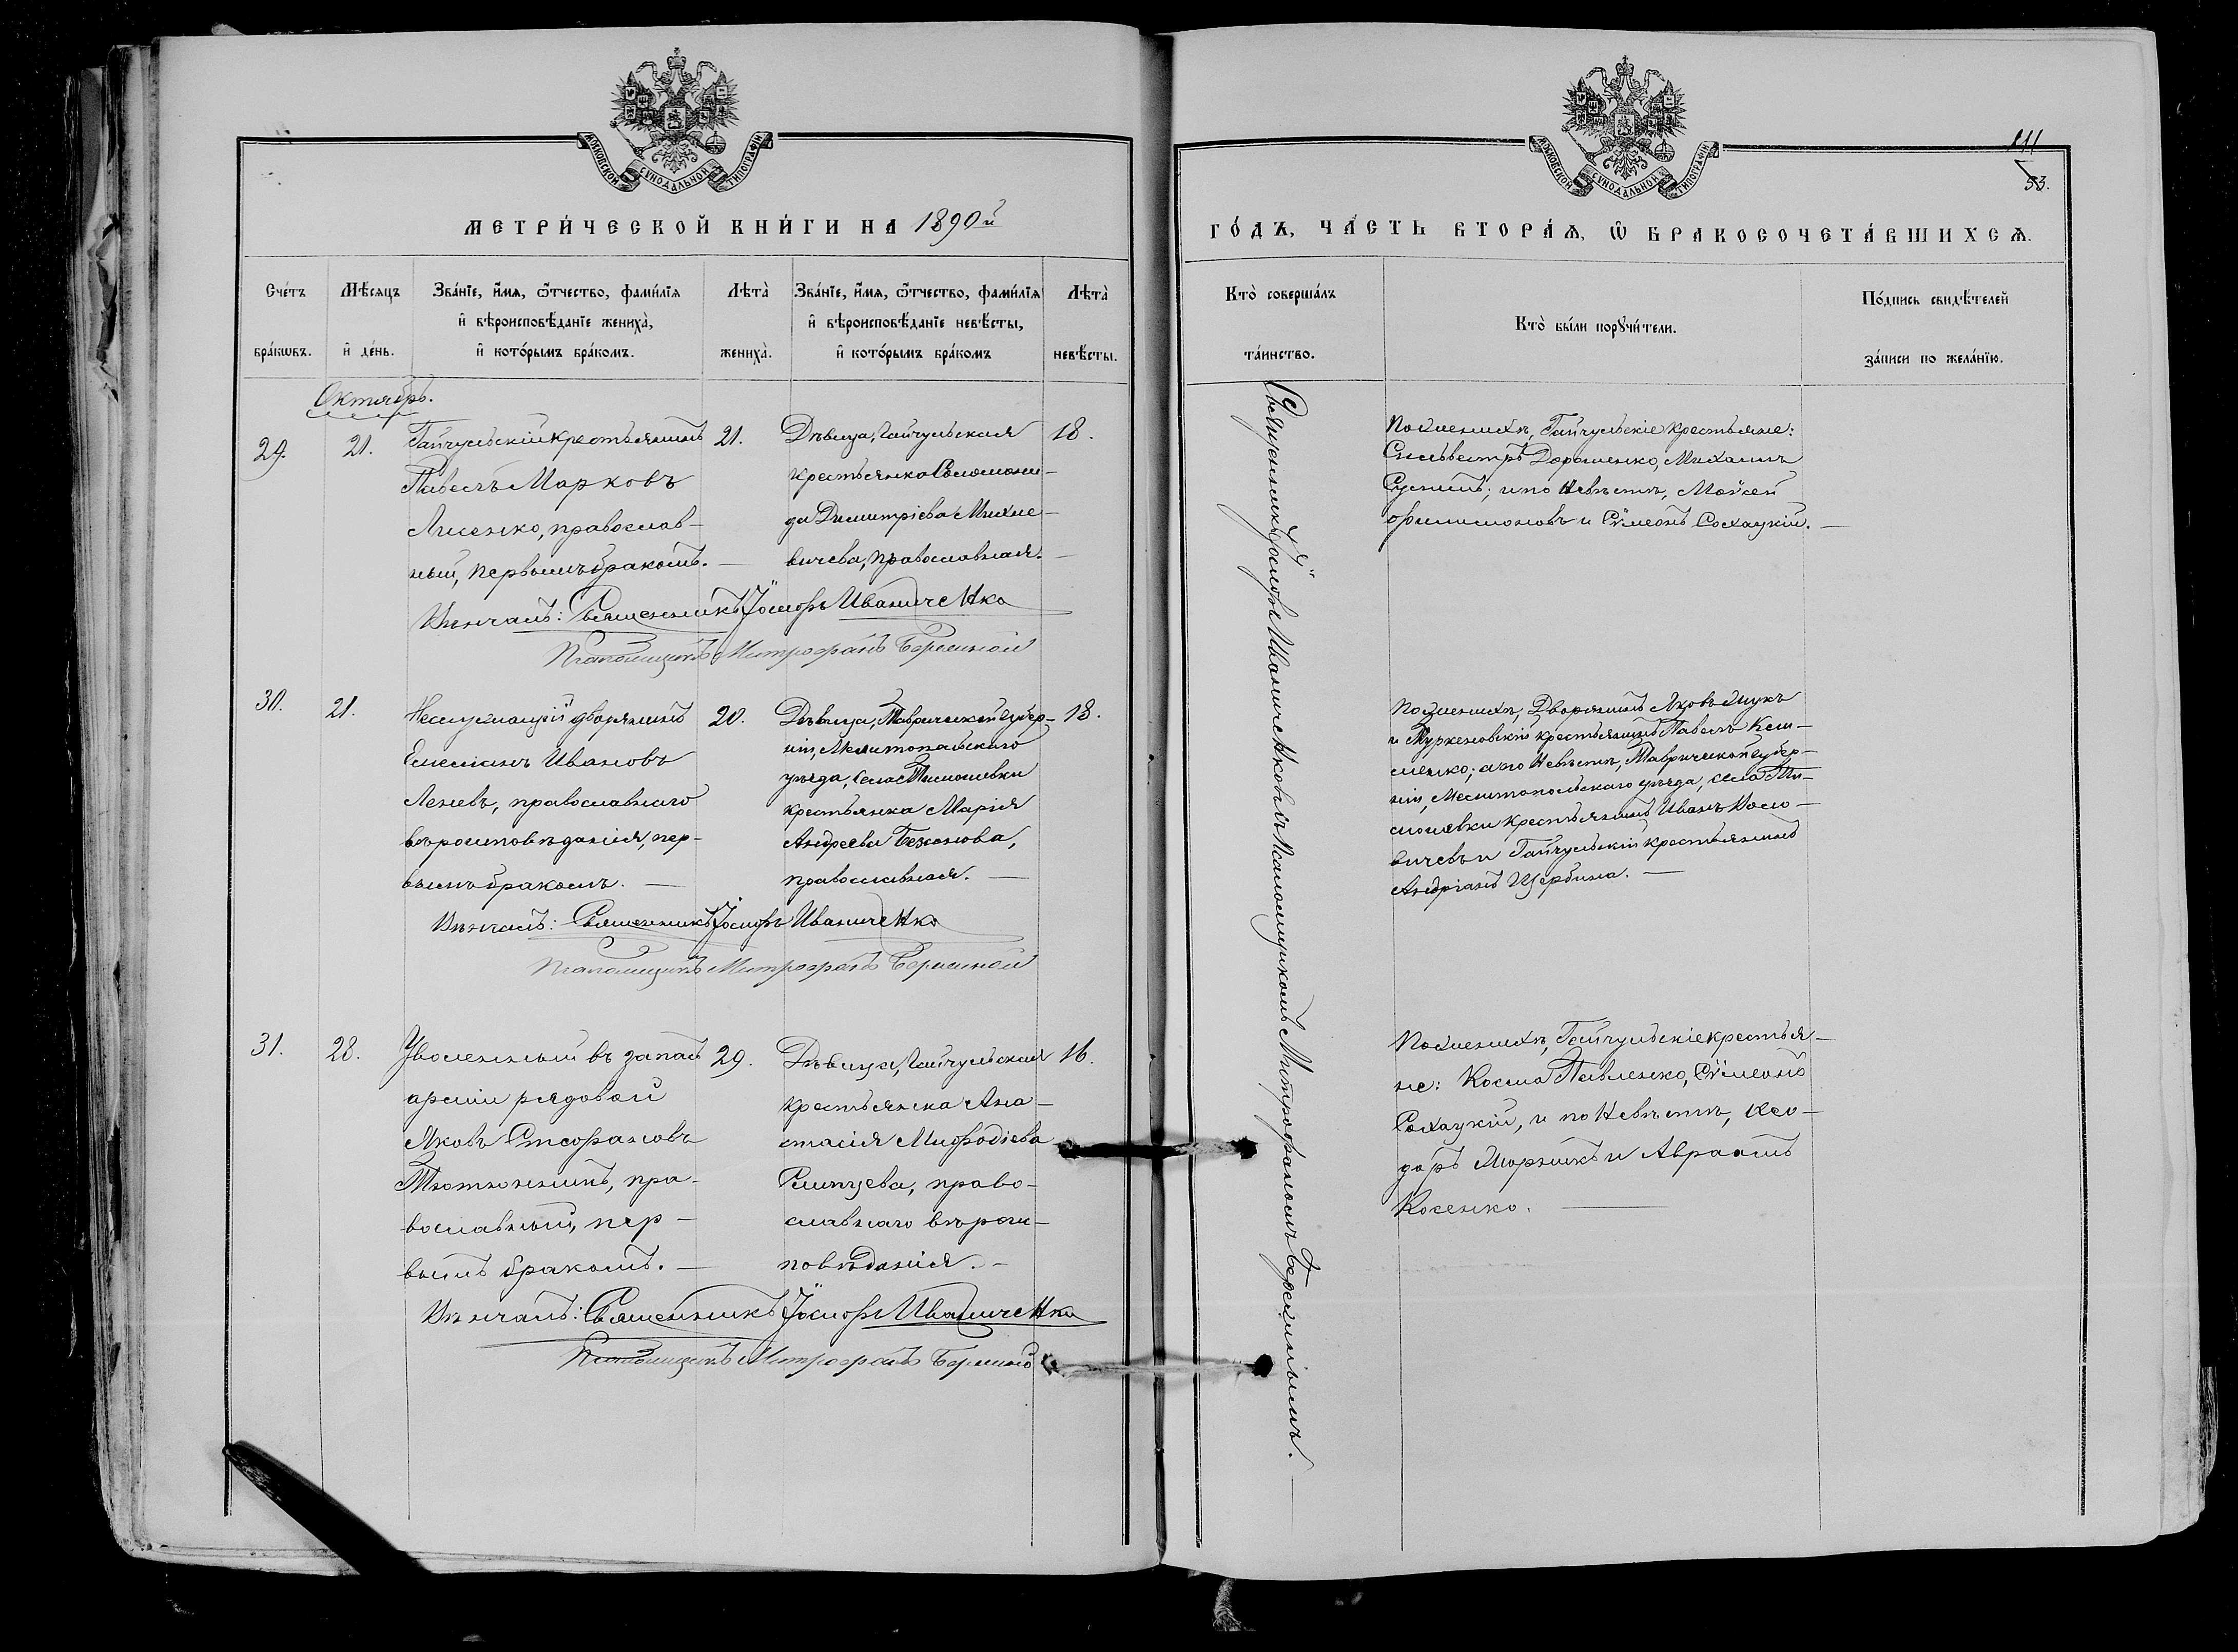 МОСКОВСКОЙ СѴНОДАЛЬНОЙ ТИПОГРАФІИ
МЕТРИ́ЧЕСКОЙ КНИ́ГИ НА 1890й
Сче́тъ бра́кѡвъ.
Мѣ́сяцъ и҆ де́нь.
Зва́нїе, и҆́мѧ, ѻ҆́тчество, фами́лїѧ
и҆ вѣроисповѣ́данїе жениха̀,
и҆ кото́рымъ бра́комъ.
Лѣта̀ жениха̀.
Зва́нїе, и҆́мѧ, ѻ҆́тчество, фами́лїѧ
и҆ вѣроисповѣ́данїе невѣ́сты,
и҆ кото́рымъ бра́комъ
Лѣта̀ невѣ́сты.
Октябрь.
29.
21.
Гайчульскій крестьянинъ
Павелъ Марковъ
Лисенко, православ-
ный, первымъ бракомъ. —
21.
Дѣвица, Гайчульская
крестьянка Соломони-
да Димитріева Михне-
вичева, православная. —
18.
Вѣнчалъ: Священникъ Іосифъ Иваниченко
Псаломщикъ Митрофанъ Бережной
30.
21.
Неслужащій дворянинъ
Емеліанъ Ивановъ
Леневъ, православнаго
вѣроисповѣданія, пер-
вымъ бракомъ. —
20.
Дѣвица, Таврической губер-
ніи, Мелитопальскаго
уѣзда, села Тимошевки
крестьянка Марія
Андреева Безкова,
православная. —
18.
Вѣнчалъ: Священникъ Іосифъ Иваниченко
Псаломщикъ Митрофанъ Бережной
31.
28.
Уволенный въ запасъ
арміи рядовой
Яковъ Стефановъ
Тютюнникъ, пра-
вославный, пер-
вымъ бракомъ. —
29.
Дѣвица, Гайчульская
крестьянка Ана-
стасія Меѳодіева
православ-
славнаго вѣроис-
повѣданія. —
16.
Вѣнчалъ: Священникъ Іосифъ Иваниченко
Псаломщикъ Митрофанъ Бережной
МОСКОВСКОЙ СѴНОДАЛЬНОЙ ТИПОГРАФІИ
111
53.
ГО́ДЪ, ЧА́СТЬ ВТОРА́Ѧ, Ѽ БРАКОСОЧЕТА́ВШИХСѦ.
Кто̀ соверша́лъ та́инство.
Кто̀ бы́ли порꙋчи́тели.
По́дпись свидѣ́телей за́писи по жела́нїю.
Священникъ Іосифъ Иваниченко съ Псаломщикомъ Митрофаномъ Бережнымъ.
По женихѣ, Гайчульскіе крестьяне:
Сильвестръ Дорошенко, Михаилъ
Сусликъ; и по невѣстѣ, Моѵсей
Филимоновъ и Сѵмеонъ Сохацкій. —
По женихѣ, Дворянинъ Яковъ Жукъ
и Туркеновскій крестьянинъ Павелъ Кли-
менко; а по невѣстѣ, Таврической губер-
ніи, Мелитопольскаго уѣзда, села Ти-
мошевки крестьянинъ Иванъ
и Гайчульскій крестьянинъ
Андріанъ Щербина. —
По женихѣ, Гайчульскіе крестья-
не: Косма Павленко, Сѵмеонъ
Сохацкій, и по невѣстѣ, Ѳео-
доръ и Авраамъ
Косенко. —